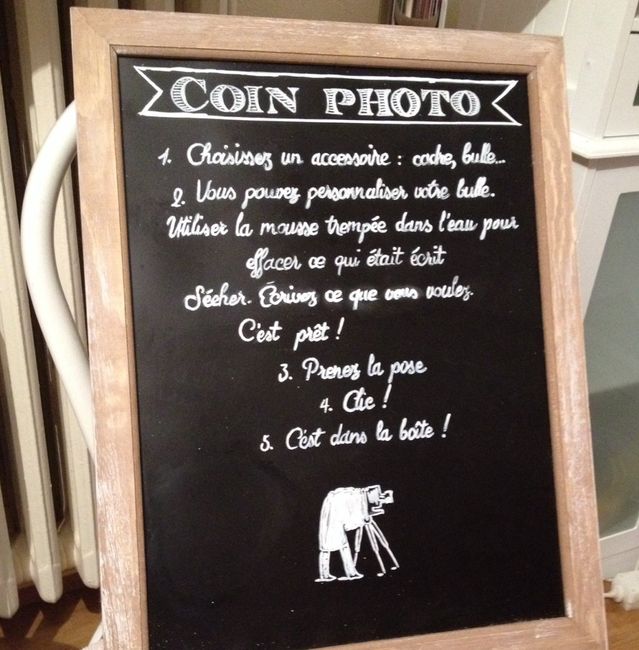 COIN PHOTO
1. Choisissez un accessoire : cadre, bulle...
2. Vous pouvez personnaliser votre bulle.
Utiliser la mousse trempée dans l'eau pour
effacer ce qui était écrit
Sécher. Écrivez ce que vous voulez.
C'est prêt !
3. Prenez la pose
4. Clic !
5. C'est dans la boîte !